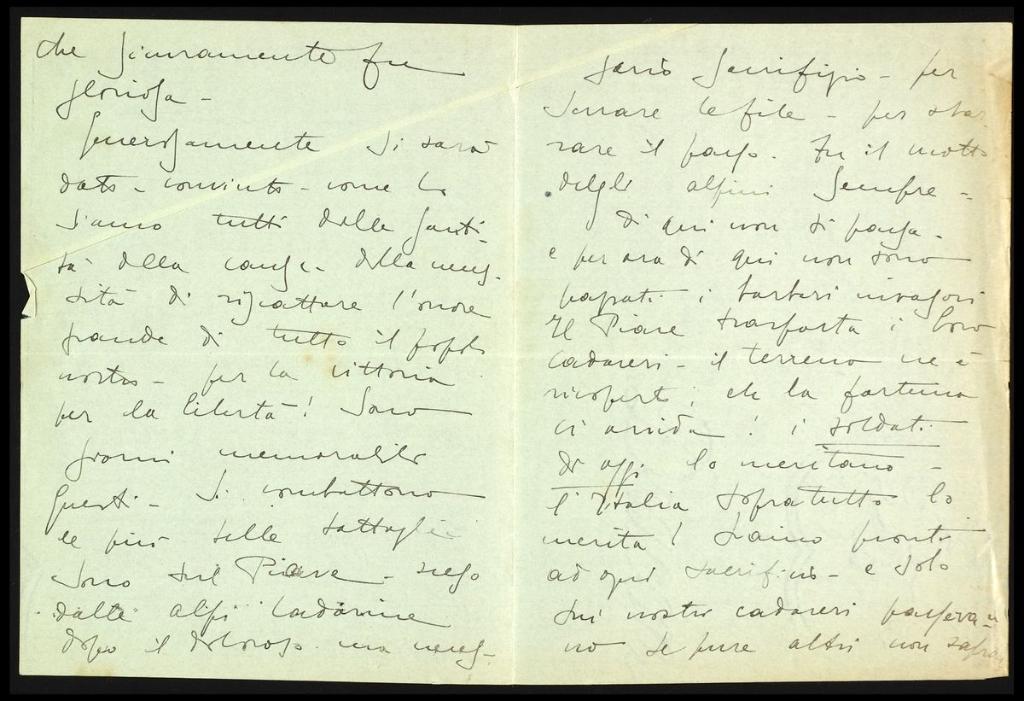 che sicuramente fu
gloriosa -
Generosamente si sarà
dato - convinto - come lo
siamo tutti della santi-
tà della causa - della neces-
sità di riscattare l'onore
grande di tutto il popolo
nostro - per la vittoria
per la libertà! Sono
giorni memorabili
questi - Si combattono
le più belle battaglie
sono sul Piave - 
dalle alpi Cadorine
dopo il doloroso ma neces-
sario sacrifizio - per
serrare le file - per sbar
rare il passo. Fu il motto
degli alpini sempre -
di qui non si passa -
e per ora di qui non sono
passati i barbari invasori
Il Piave trasporta i loro
cadaveri - il terreno ne è
ricoperto; che la fortuna
ci arrida! i soldati
di oggi lo meritano -
l'Italia sopratutto lo
merita! Siamo pronti
ad ogni sacrificio - e solo
sui nostri cadaveri passeran
no se pure altri non